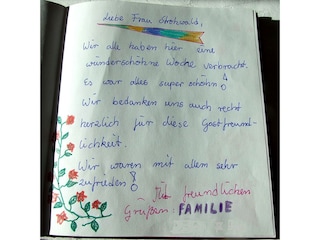 Liebe Frau Strohwald,
Wir alle haben hier eine
wunderschöhne Woche verbracht.
Es war alles super schöhn!
Wir bedanken uns auch recht
herzlich für diese Gastfreund-
lichkeit.
Wir waren mit allem sehr
zufrieden!
Mit freundlichen
Grüßen: FAMILIE